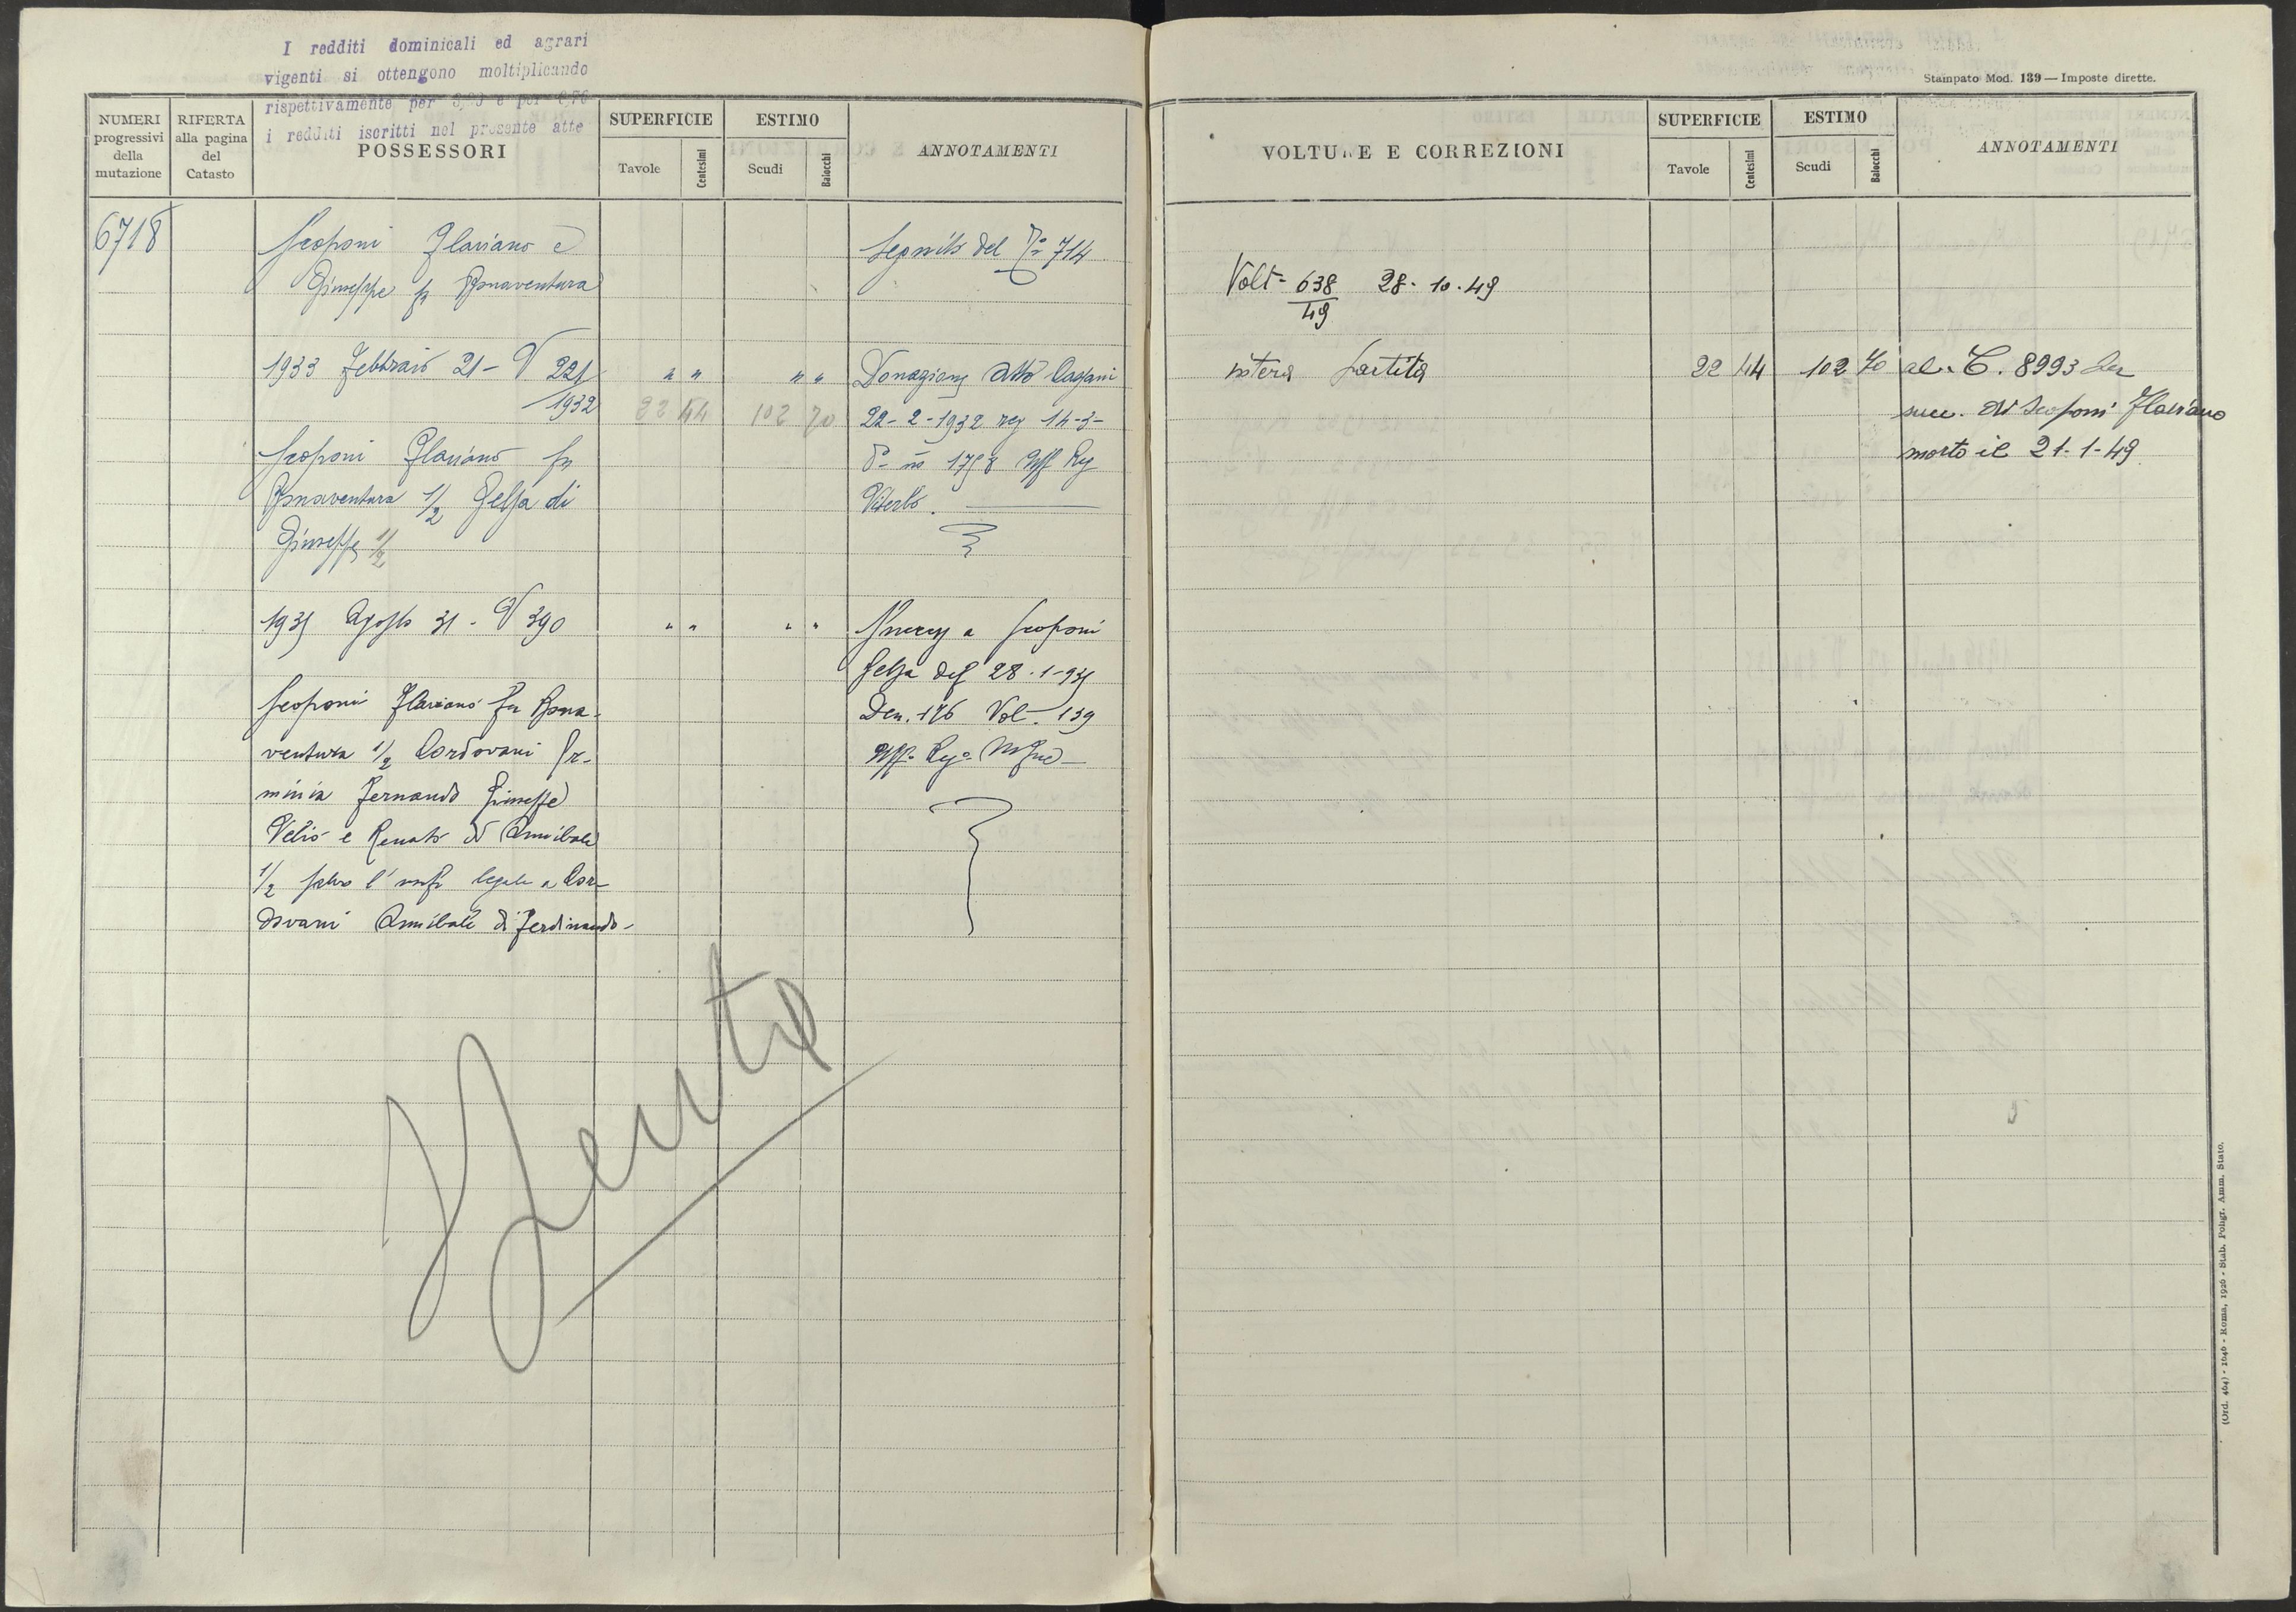 I redditi dominicali ed agrari
vigenti si ottengono moltiplicando
rispettivamente per e per
i redditi iscritti nel presente atte
NUMERI progressivi della mutazione
RIFERTA alla pagina del Catasto
POSSESSORI
SUPERFICIE
Tavole Centesimi
ESTIMO
Scudi Baiocchi
ANNOTAMENTI
6718
Scoponi Flaviano e
Giuseppe fu Bonaventura
Seguito del 714
1933 Febbraio 21 - V 221/1932
" " " "
22 44 102 70
Donazione atto
22-2-1932 reg 14-3-
Uff Reg
Viterbo.
Scoponi Flaviano fu
Bonaventura 1/2 Gelsa di
Giuseppe 1/2
1935 Agosto 31 - V 390
" " " "
a Scoponi
Gelsa 28-1-935
Den. 176 Vol. 139
Uff. Reg.
Scoponi Flaviano fu Bona-
ventura 1/2 Cordovani Er-
minia Fernando Giuseppe
Velio e Renato di Annibale
1/2 salvo l'usuf legale a Cor-
dovani Annibale di Ferdinando-
Stampato Mod. 139 — Imposte dirette.
VOLTURE E CORREZIONI
SUPERFICIE
Tavole Centesimi
ESTIMO
Scudi Baiocchi
ANNOTAMENTI
Volt- 638/49 28-10-49
intera partita 22 44 102 70 al C. 8993 per
succ. di Scoponi Flaviano
morto il 21-1-49
(Ord. 464) - 1046 - Roma, 1926 - Stab. Poligr. Amm. Stato.